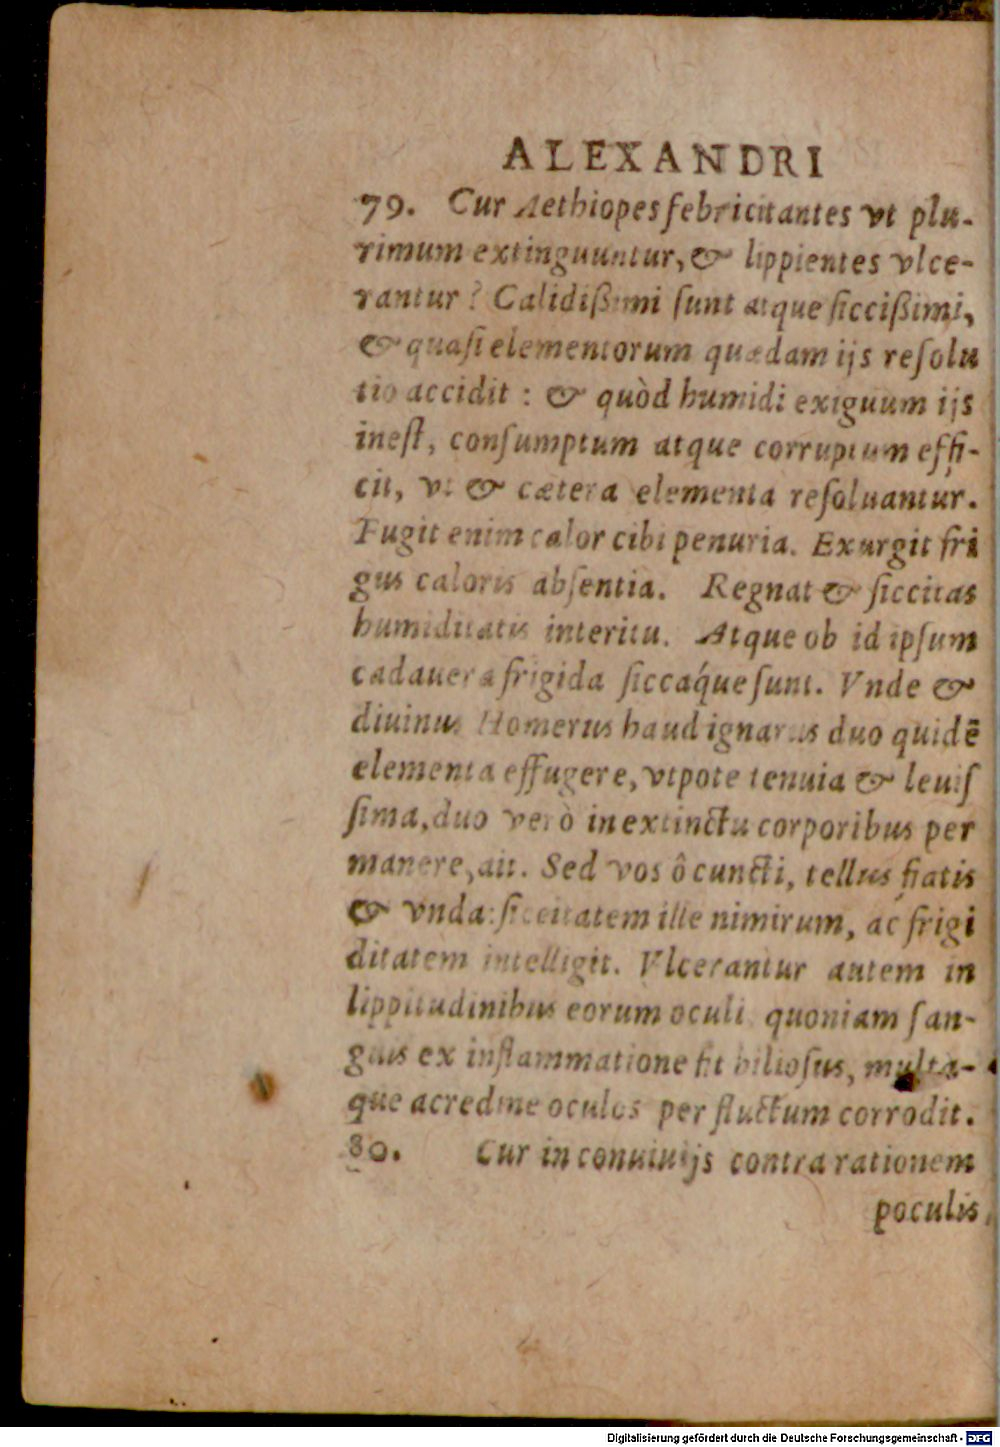 ALEXANDRI
79. Cur Aethiopes febricitantes vt plu-
rimum extinguuntur, & lippientes vlce-
rantur? Calidißimi ſunt atque ſiccißimi,
& quaſi elementorum quædam ijs reſolu
tio accidit : & quòd humidi exiguum ijs
ineſt, conſumptum atque corruptum effi-
cit, vt & cætera elementa reſoluantur.
Fugit enim calor cibi penuria. Exurgit fri
gus caloris abſentia. Regnat & ſiccitas
humiditatis interitu. Atque ob id ipſum
cadauera frigida ſiccáque ſunt. Vnde &
diuinus Homerus haud ignarus duo quidē
elementa effugere, vtpote tenuia & leuiſ
ſima, duo verò in extinctu corporibus per
manere, ait. Sed vos ô cuncti, tellus fiatis
& vnda: ſiccitatem ille nimirum, ac frigi
ditatem intelligit. Vlcerantur autem in
lippitudinibus eorum oculi quoniam ſan-
guis ex inflammatione fit bilioſus, multa-
que acredine oculos per fluctum corrodit.
80. Cur in conuiuijs contra rationem
poculis
Digitalisierung gefördert durch die Deutsche Forschungsgemeinschaft - DFG